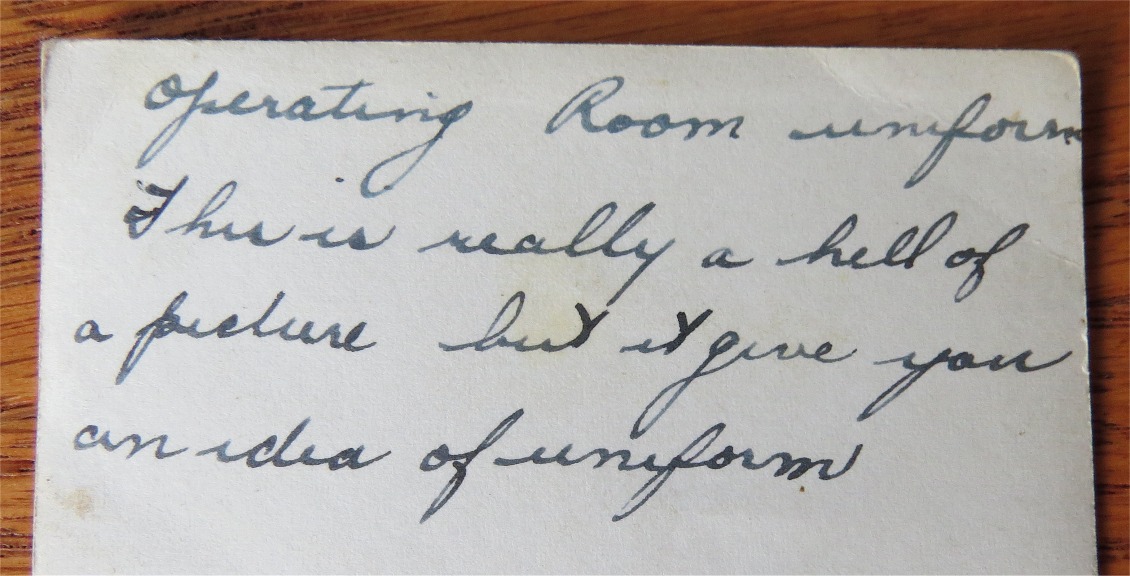 Operating Room uniform
This is really a hell of
a picture but it give you
an idea of uniform